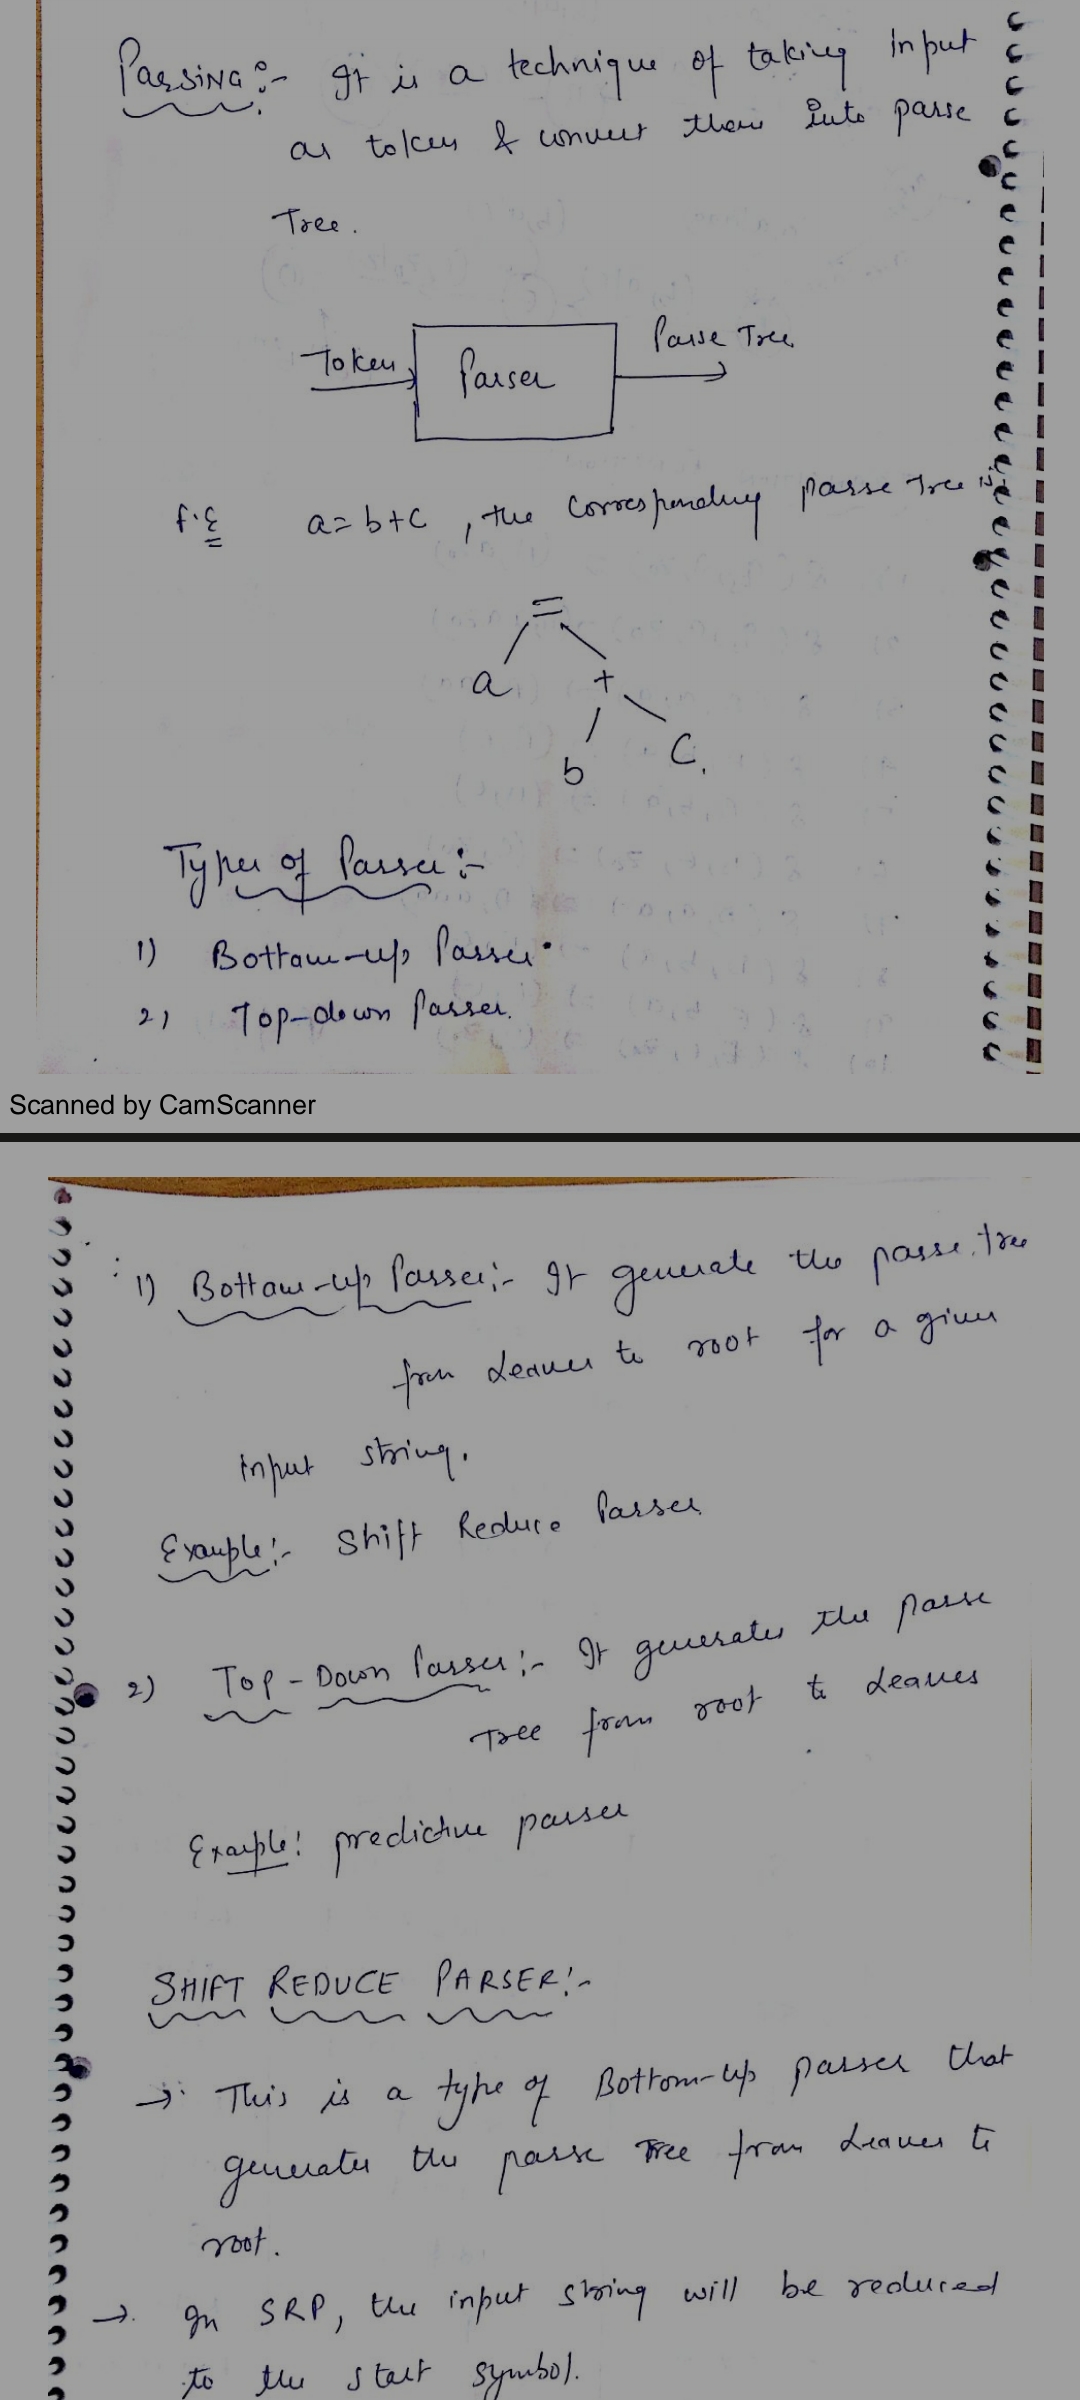 PARSING:- It is a technique of taking input
as token & convert them into parse
Tree.
Token
Parser
Parse Tree
f.E a=b+c, the corresponding parse tree is
=
a +
b C.
Types of Parser:-
1) Bottom-up Parser.
2) Top-down Parser.
Scanned by CamScanner
1) Bottom-up Parser:- It generate the parse tree
from leaves to root for a given
input string.
Example:- Shift Reduce Parser
2) Top-Down Parser:- It generates the parse
Tree from root to leaves
Example: predictive parser
SHIFT REDUCE PARSER:-
→ This is a type of Bottom-up parser that
generates the parse Tree from leaves to
root.
→ In SRP, the input string will be reduced
to the start symbol.